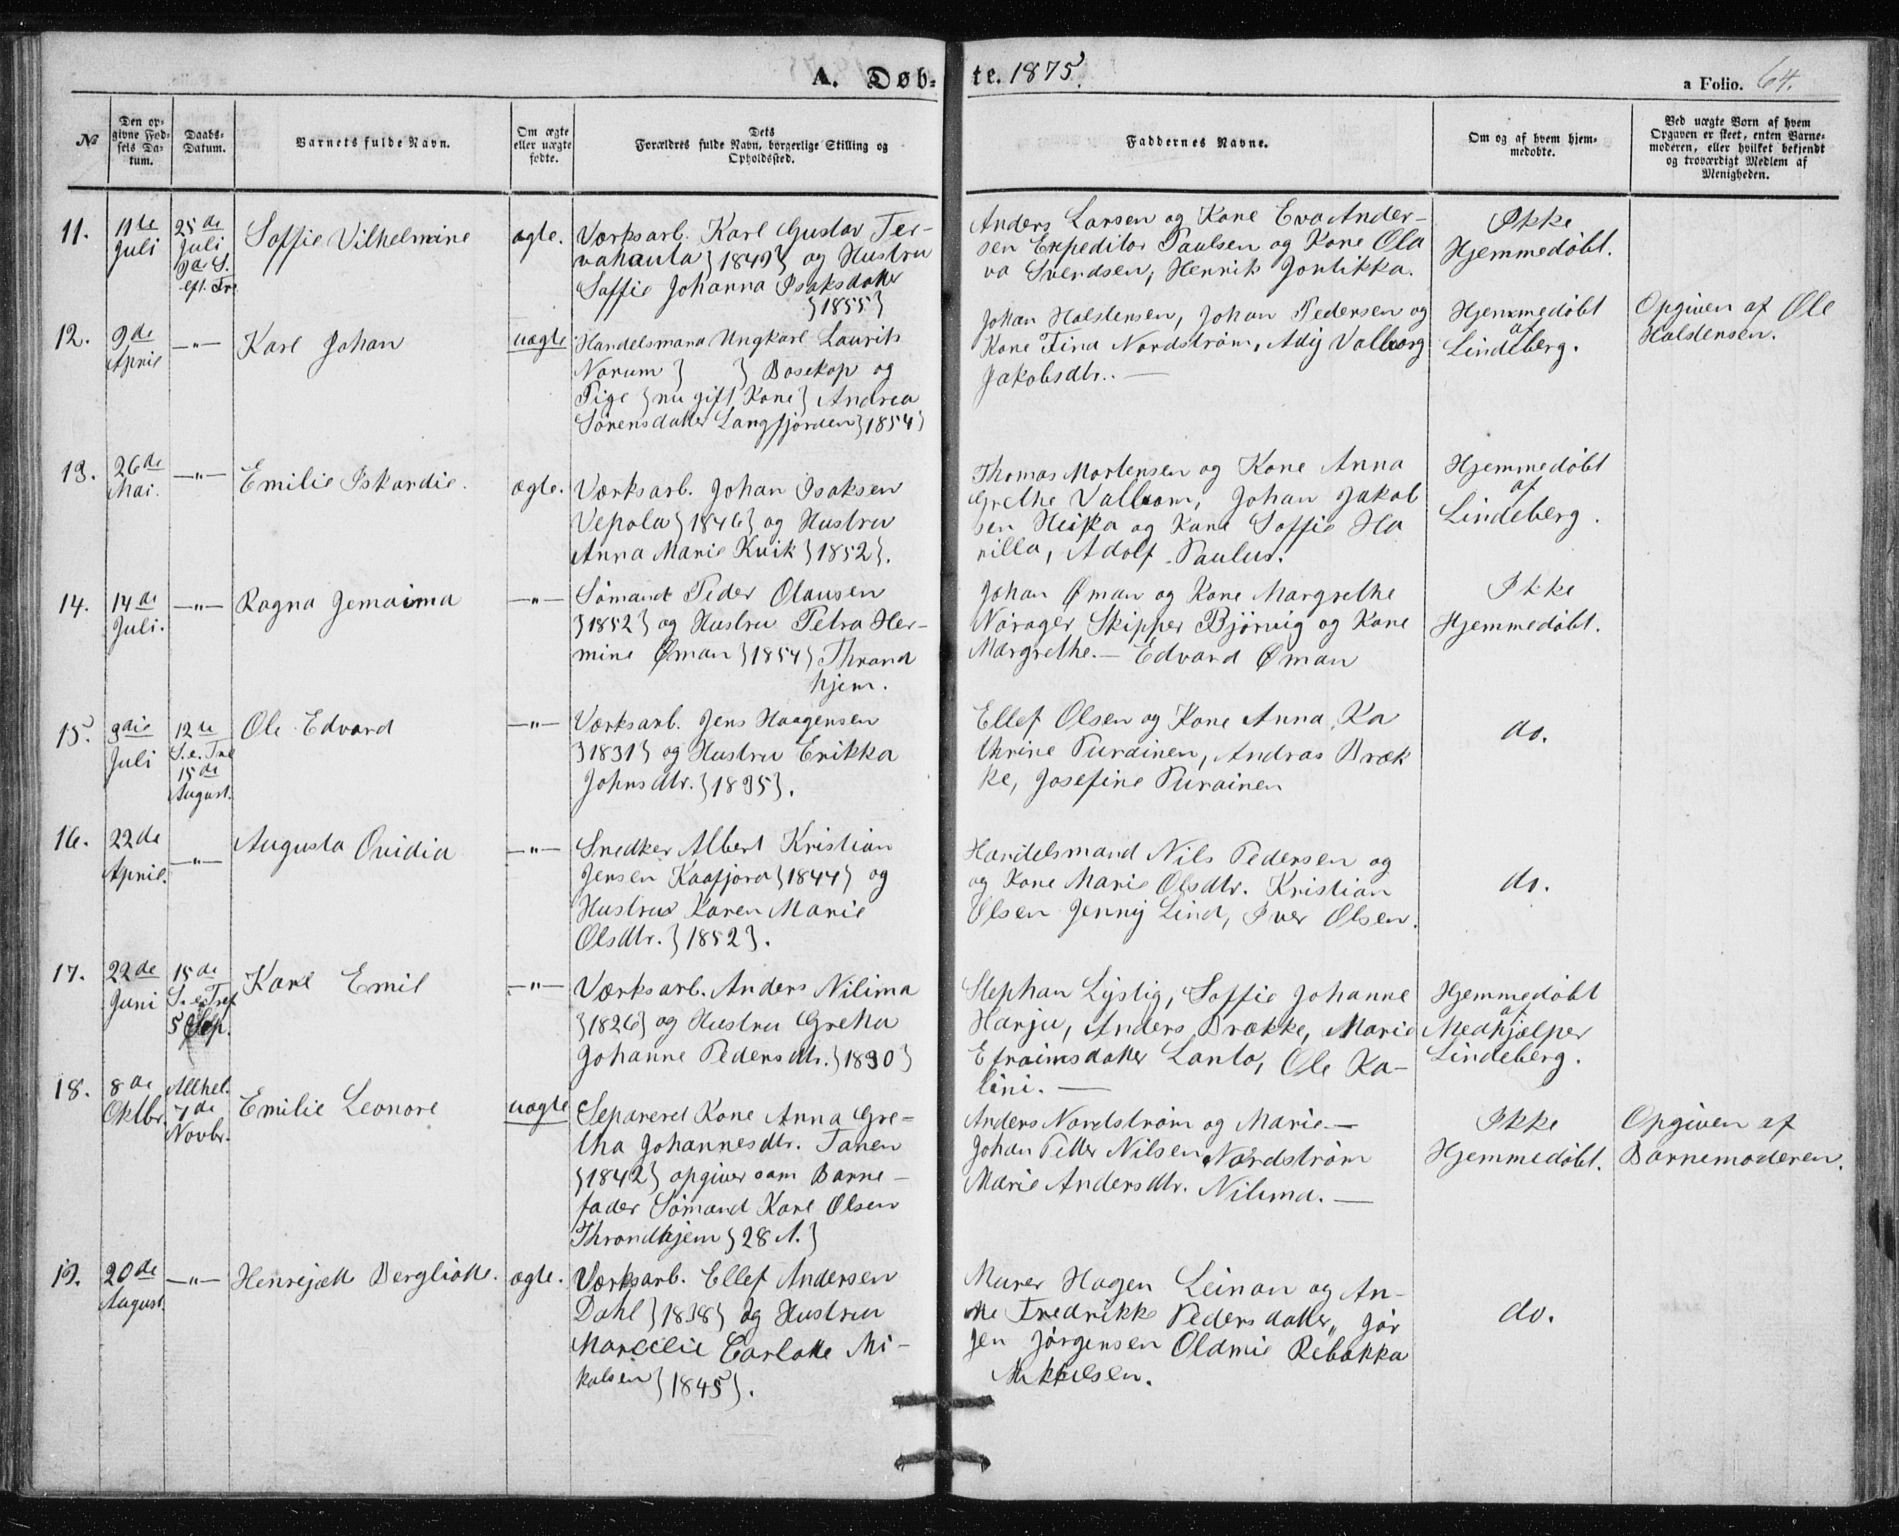 A. Døb- te. 1875. a Folio. 64.
№
Den op-
givne Fød-
sels Da-
tum.
Daabs-
Datum.
Barnets fulde Navn.
Om ægte
eller uægte
fødte.
Dets
Forældres fulde Navn, borgerlige Stilling og
Opholdssted.
Faddernes Navne.
Om og af hvem hjem-
medøbte.
Ved uægte Born af hvem
Opgaven er skeet, enten Barne-
moderen, eller hvilket bekjendt
og troværdigt Medlem af
Menigheden.
11.
11te
Juli
25de
Juli
9de S.
eft. Tr.
Soffie Vilhelmine
ægte.
Værksarb. Karl Gustav Ter-
vahauta }1849} og Hustru
Soffie Johanna Isaksdatter
}1855}
Anders Larsen og Kone Eva Ander-
sen Expeditør Paulsen og Kone Ola
va Svendsen, Henrik Jontikka.
Ikke
Hjemmedøbt.
12.
9de
April
—"—
Karl Johan
uægte
Handelsmand Ungkarl Laurits
Norum } } Bosekop og
Pige }nu gift Kone} Andrea
Sørensdatter Langfjorden }1854}
Johan Halstensen, Johan Pedersen og
Kone Fina Nordstrøm, Ady Valborg
Jakobsdtr. —
Hjemmedøbt
af
Lindeberg.
Opgiven af Ole
Halstensen.
13.
26de
Mai.
—"—
Emilie Iskandie.
ægte.
Værksarb. Johan Isaksen
Vepola }1846} og Hustru
Anna Marie Kvik }1852}.
Thomas Mortensen og Kone Anna
Grethe Vallvom, Johan Jakob
sen Heika og Kone Soffie Ha
rilla, Adolf Paulus.
Hjemmedøbt
af
Lindeberg.
14.
14de
Juli.
—"—
Ragna Jemaima
—"—
Sømand Peder Olausen
}1852} og Hustru Petra Her-
mine Øman }1854} Thrond
hjem.
Johan Øman og Kone Margrethe
Norager Skipper Bjørvig og Kone
Margrethe. — Edvard Øman
Ikke
Hjemmedøbt.
15.
9die
Juli
12te
S. e. Tre
15de
August.
Ole Edvard
—"—
Værksarb. Jens Haagensen
}1831} og Hustru Erikka
Johnsdtr. }1835}.
Ellef Olsen og Kone Anna Ka
thrine Purainen, Andras Bræk
ke, Josefine Purainen
do.
16.
22de
April.
—"—
Augusta Ovidia
—"—
Snedker Albert Kristian
Jensen Kaafjord }1844} og
Hustru Karen Marie
Olsdtr. }1852}.
Handelsmand Nils Pedersen og
og Kone Marie Olsdtr. Kristian
Olsen Jenny Lind, Iver Olsen.
do.
17.
22de
Juni
15de
S. e. Tref
5 Sep.
Karl Emil
—"—
Værksarb. Anders Nilima
}1826} og Hustru Gretha
Johanne Pedersdtr. }1830}
Stephan Lystig, Soffie Johanne
Harju, Anders Brække, Marie
Efraimsdatter Lanto, Ole Ka-
lini. —
Hjemmedøbt
af
Medhjælper
Lindeberg.
18.
8de
Oktbr.
Allhel.
7de
Novbr.
Emilie Leonore
uægte
Separeret Kone Anna Gre-
tha Johannesdtr. Tanen
}1842} opgiver som Barne-
fader Sømand Karl Olsen
Throndhjem }28 A.}
Anders Nordstrøm og Marie —
Johan Petter Nilsen Nordstrøm
Marie Andersdtr. Nilima. —
Ikke
Hjemmedøbt.
Opgiven af
Barnemoderen.
19.
20de
August.
—"—
Henrejætte Bergliotte.
ægte.
Værksarb. Ellef Andersen
Dahl }1838} og Hustru
Marcelie Carlotte Mi-
kalsen }1845}.
Murer Hagen Leinan og An-
ne Fredrikke Pedersdatter, Jør
gen Jørgensen Oldmie Rebakka
Mikkelsen.
do.